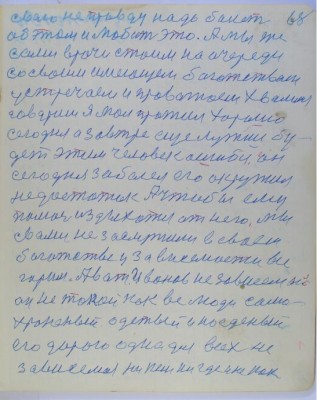 свою неправду надо болет 68
об этом и любит это. А мы же
сами врачи стоим на очереди
со своим имеющем богатством
устречаем и провожаем Хвалимся
говорим Я мол прожил хорошо
сегодня а завтра еще лучши бу-
дет Этим человек ошибй, он
сегодня заболел его окружил
недостаток А чтобы ему
помощ из
от него, мы
свами не заслужили в своем
богатстве и зависемости вы-
горит. А вот Иванов не зависемый
он не такой как все люди само-
храненый одетый и наеденый
его дорога одна для всех не
зависемая ни